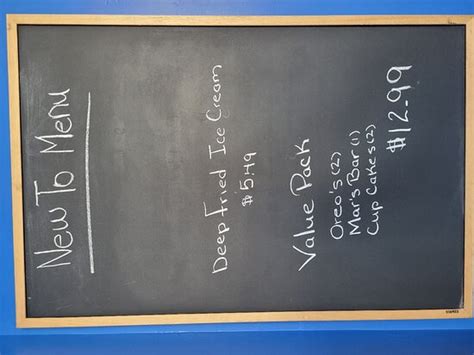 New To Menu
Deep Fried Ice Cream
$5.49
Value Pack
Oreo's (2)
Mar's Bar (1)
Cup Cakes (2)
$12.99